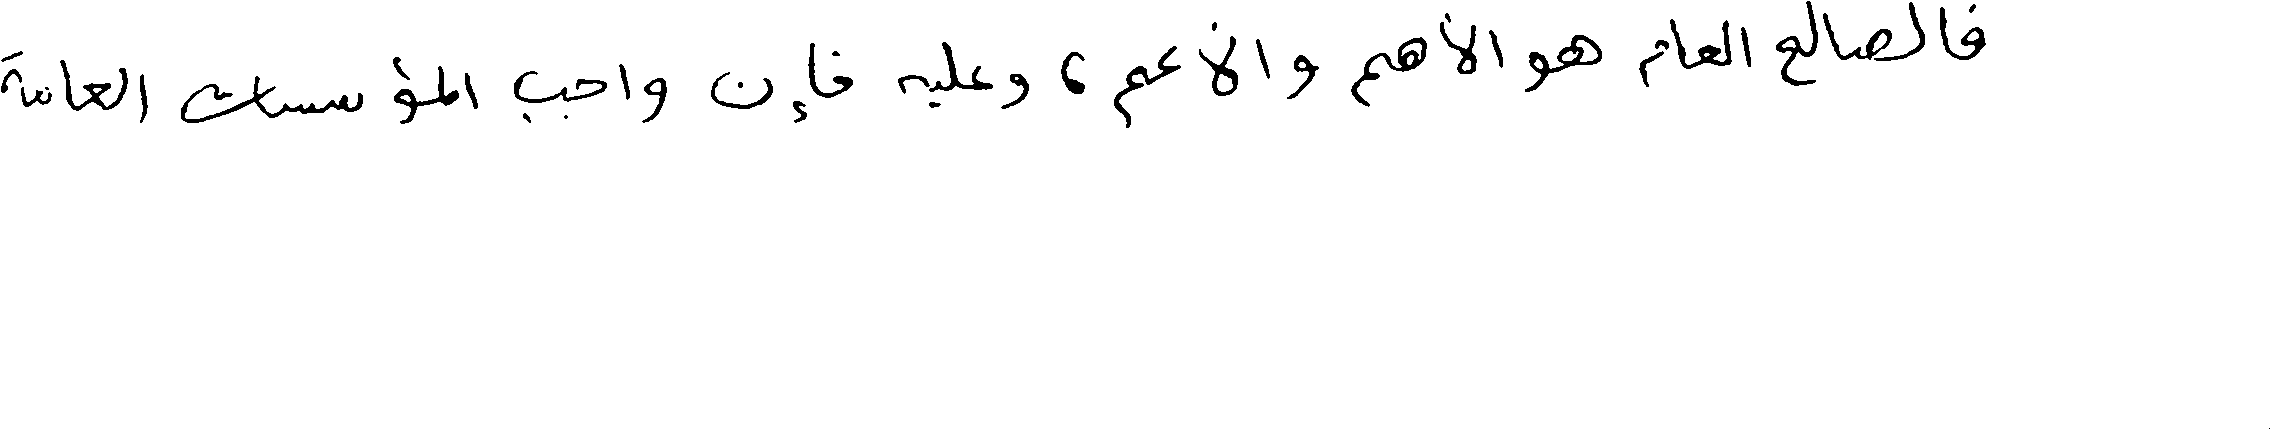 فالصالح العام هو الأهم والأعم، وعليه فإن واجب المؤسسات العامة